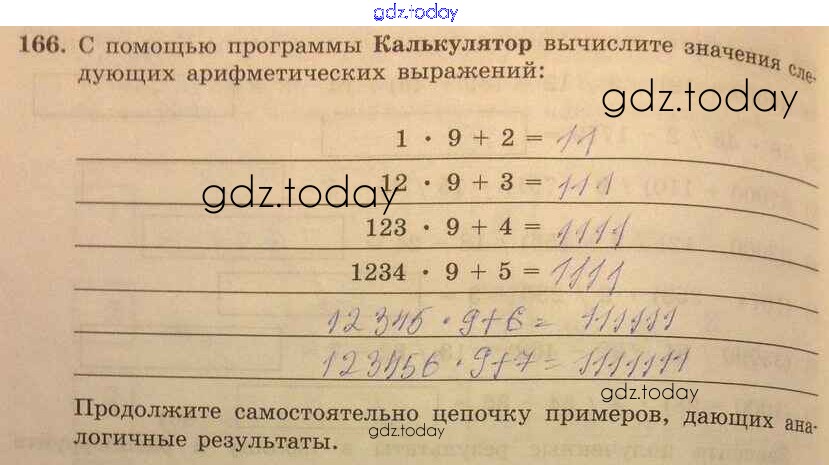 gdz.today
166. С помощью программы Калькулятор вычислите значения сле-
дующих арифметических выражений:
gdz.today
1 · 9 + 2 = 11
12 · 9 + 3 = 111
gdz.today
123 · 9 + 4 = 1111
1234 · 9 + 5 = 1111
12345 · 9+6= 111111
123456 · 9+7= 1111111
gdz.today
Продолжите самостоятельно цепочку примеров, дающих ана-
логичные результаты.
gdz.today